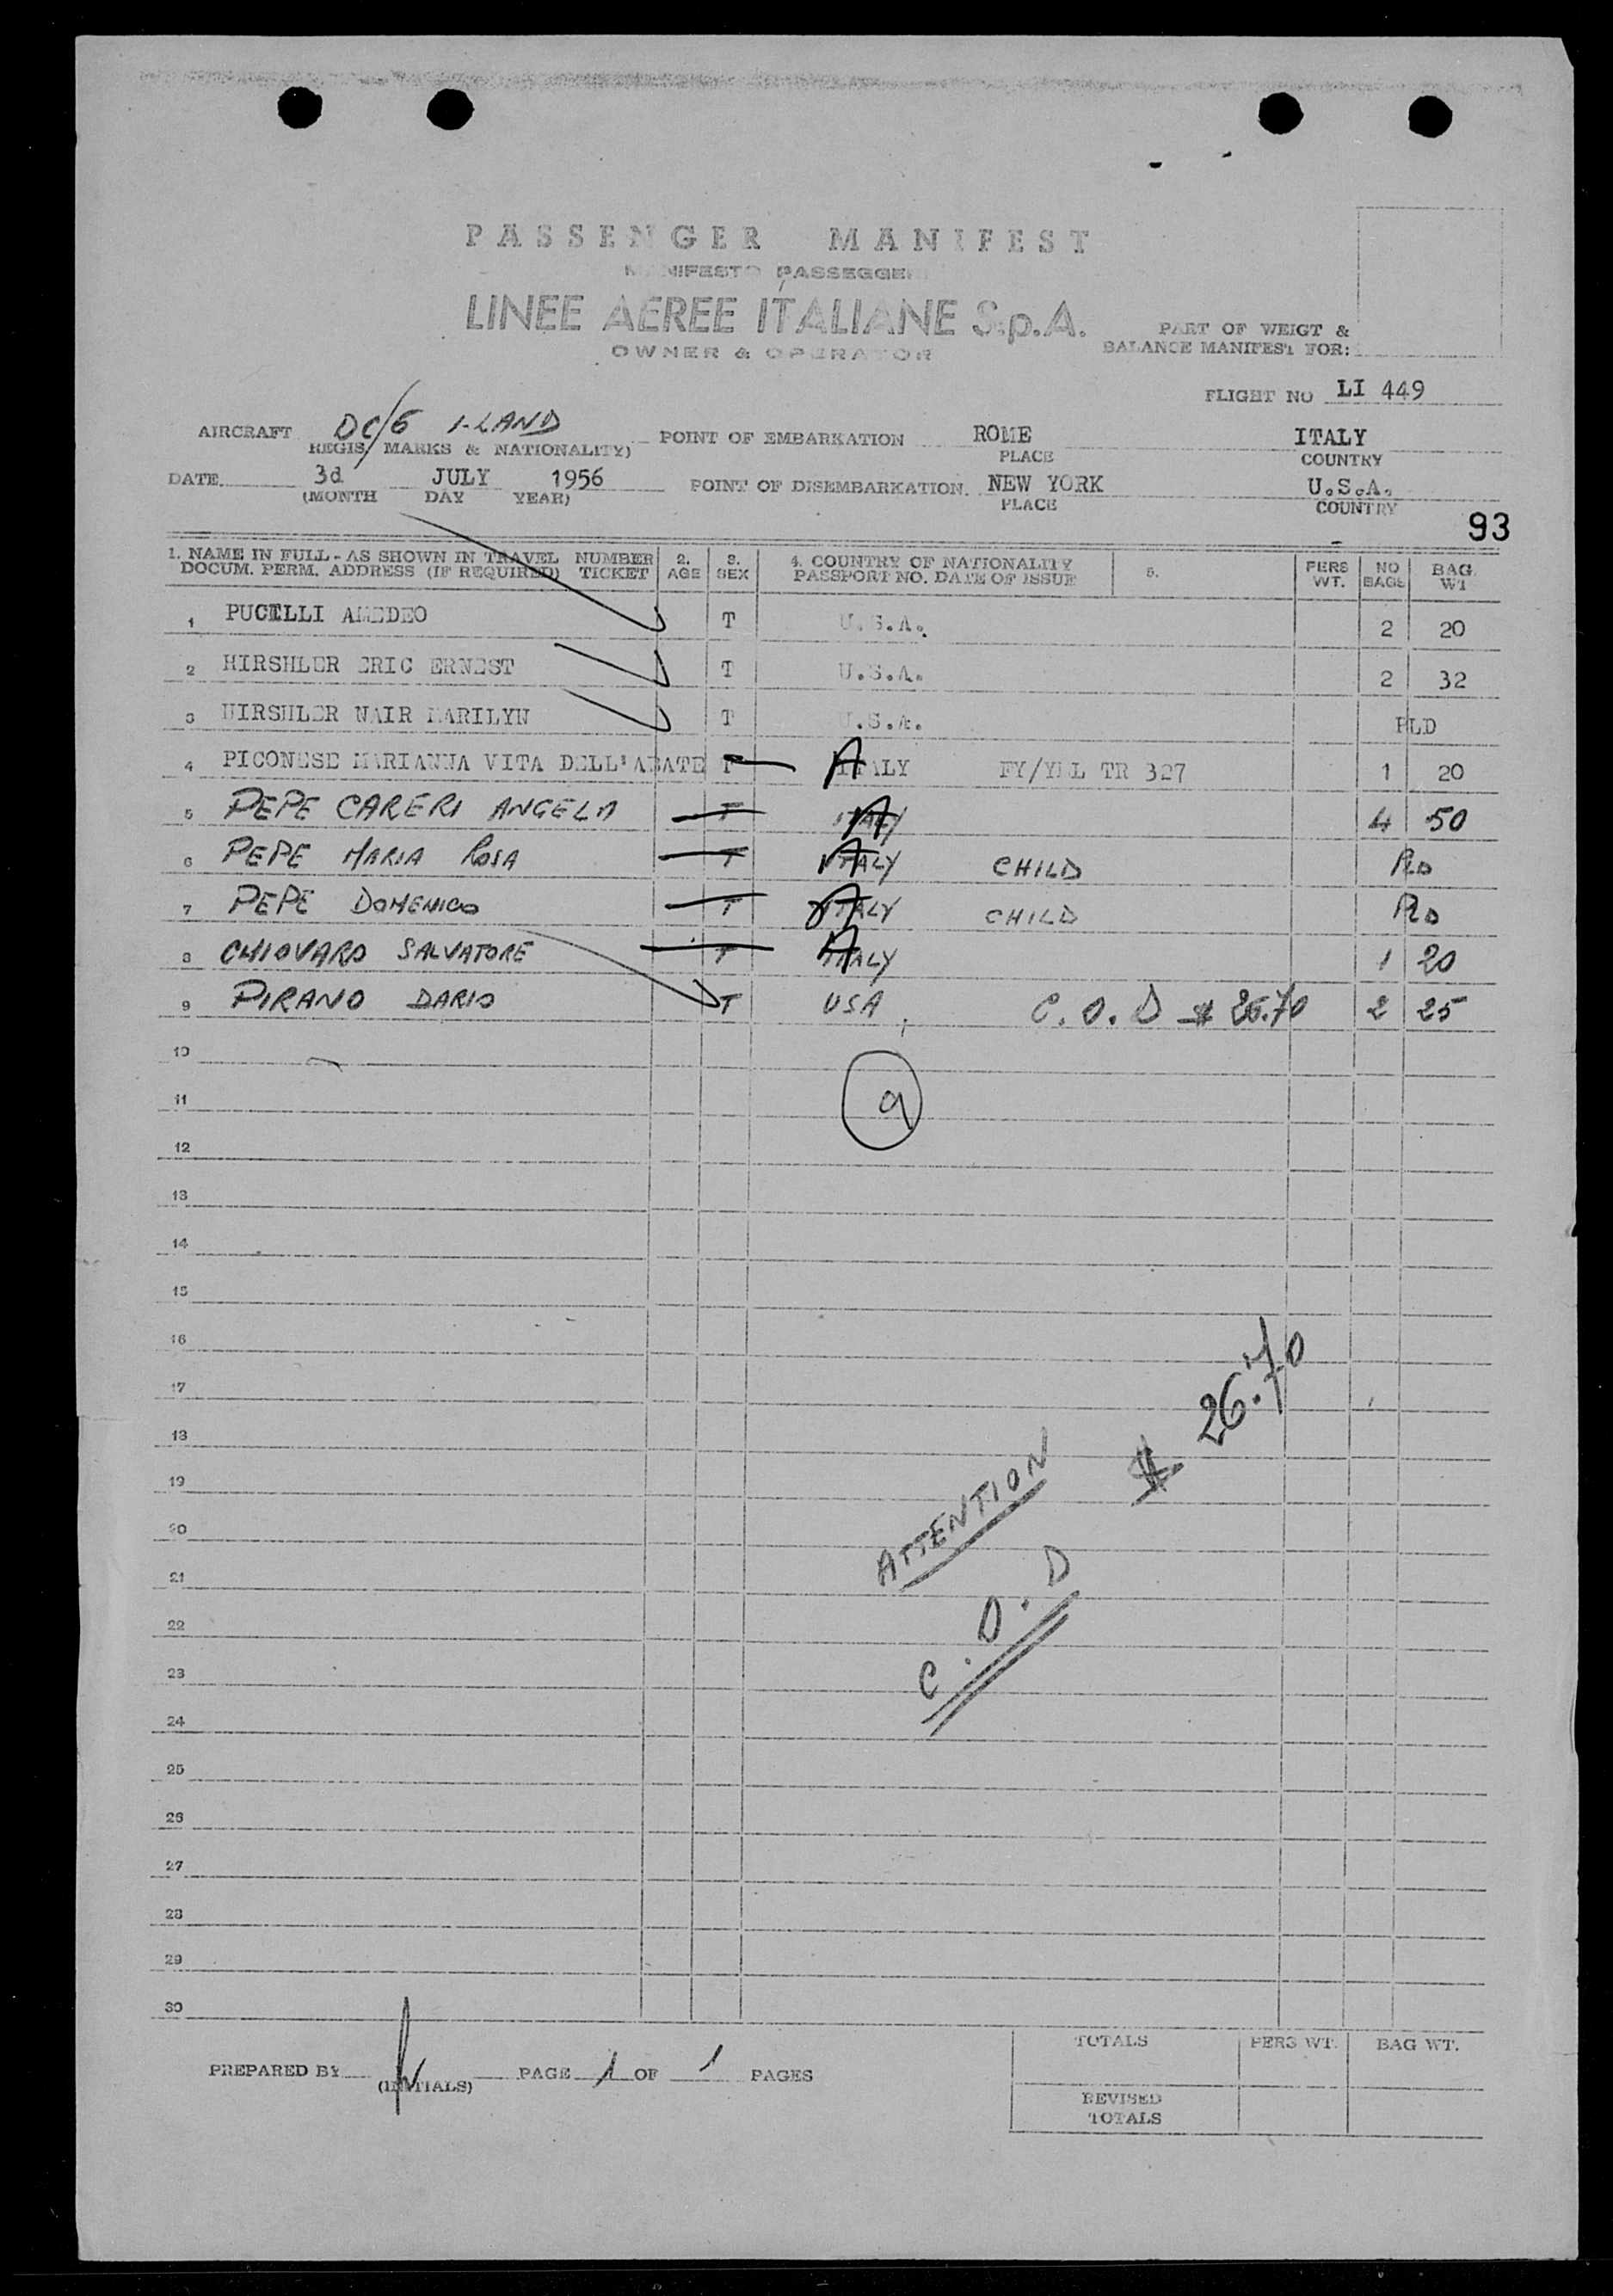 PASSENGER MANIFEST
MANIFESTO PASSEGGERI
LINEE AEREE ITALIANE S.p.A.
OWNER & OPERATOR
PART OF WEIGT &
BALANCE MANIFEST FOR:
FLIGHT NO LI 449
AIRCRAFT DC/6 I-LAND POINT OF EMBARKATION ROME ITALY
REGIS. MARKS & NATIONALITY) PLACE COUNTRY
DATE 3d JULY 1956 POINT OF DISEMBARKATION NEW YORK U.S.A.
(MONTH DAY YEAR) PLACE COUNTRY
93
1. NAME IN FULL - AS SHOWN IN TRAVEL NUMBER 2. 3. 4. COUNTRY OF NATIONALITY 5. PERS NO BAG
DOCUM. PERM. ADDRESS (IF REQUIRED) TICKET AGE SEX PASSPORT NO. DATE OF ISSUE WT. BAGS WT
1 PUCILLI AMEDEO T U.S.A. 2 20
2 HIRSHLER ERIC ERNEST T U.S.A. 2 32
3 HIRSHLER NAIR MARILYN T U.S.A. PLD
4 PICONESE MARIANNA VITA DELL'ABATE T A ITALY FY/YRL TR 327 1 20
5 PEPE CARERI ANGELA T A ITALY 4 50
6 PEPE MARIA ROSA T A ITALY CHILD PLD
7 PEPE DOMENICO T A ITALY CHILD PLD
8 CHIOVARO SALVATORE T A ITALY 1 20
9 PIRANO DARIO T USA C.O.D $ 26.70 2 25
10
11 9
12
13
14
15
16
17 $ 26.70
18
19
20 ATTENTION
21
22 C.O.D
23
24
25
26
27
28
29
30
TOTALS PERS WT. BAG WT.
PREPARED BY PAGE 1 OF 1 PAGES
(INITIALS)
REVISED
TOTALS